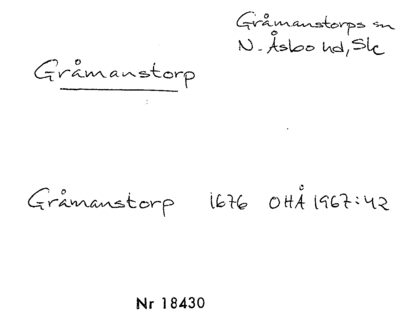 Gråmanstorps sn
N. Åsbo hd, Sk
Gråmanstorp
Gråmanstorp 1676 OHÅ 1967:42
Nr 18430